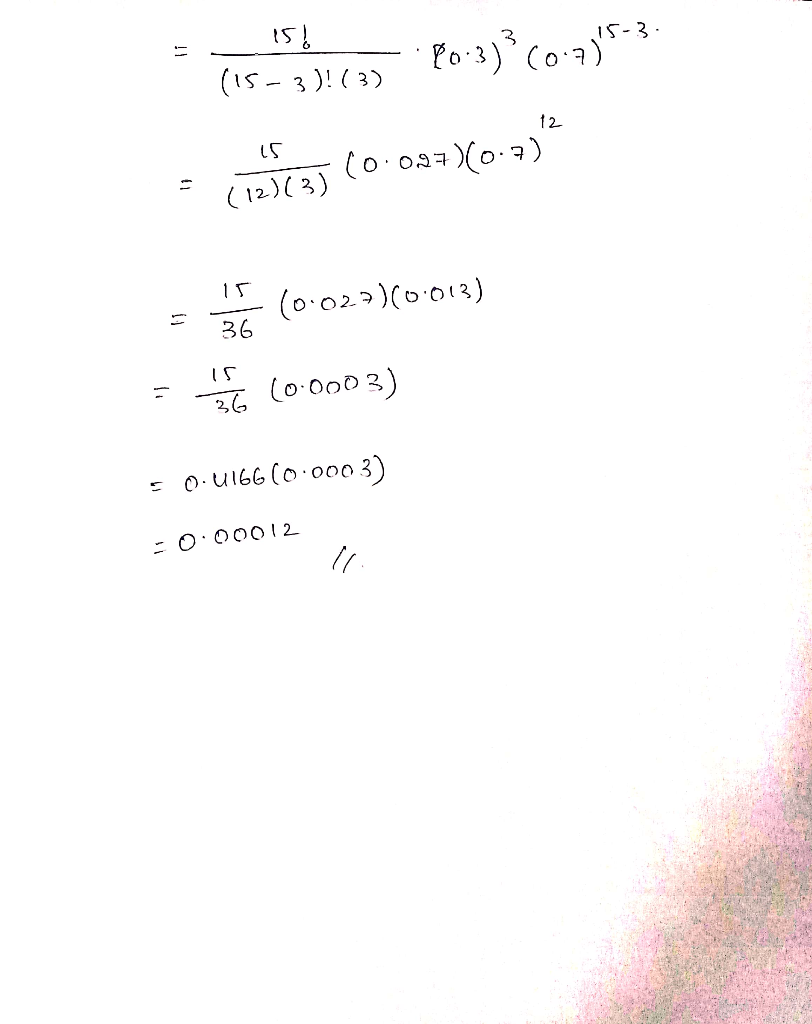 = 15! / (15-3)!(3) · (0.3)³ (0.7)¹⁵⁻³.
= 15 / (12)(3) (0.027)(0.7)¹²
= 15/36 (0.027)(0.013)
= 15/36 (0.0003)
= 0.4166(0.0003)
= 0.00012 //.